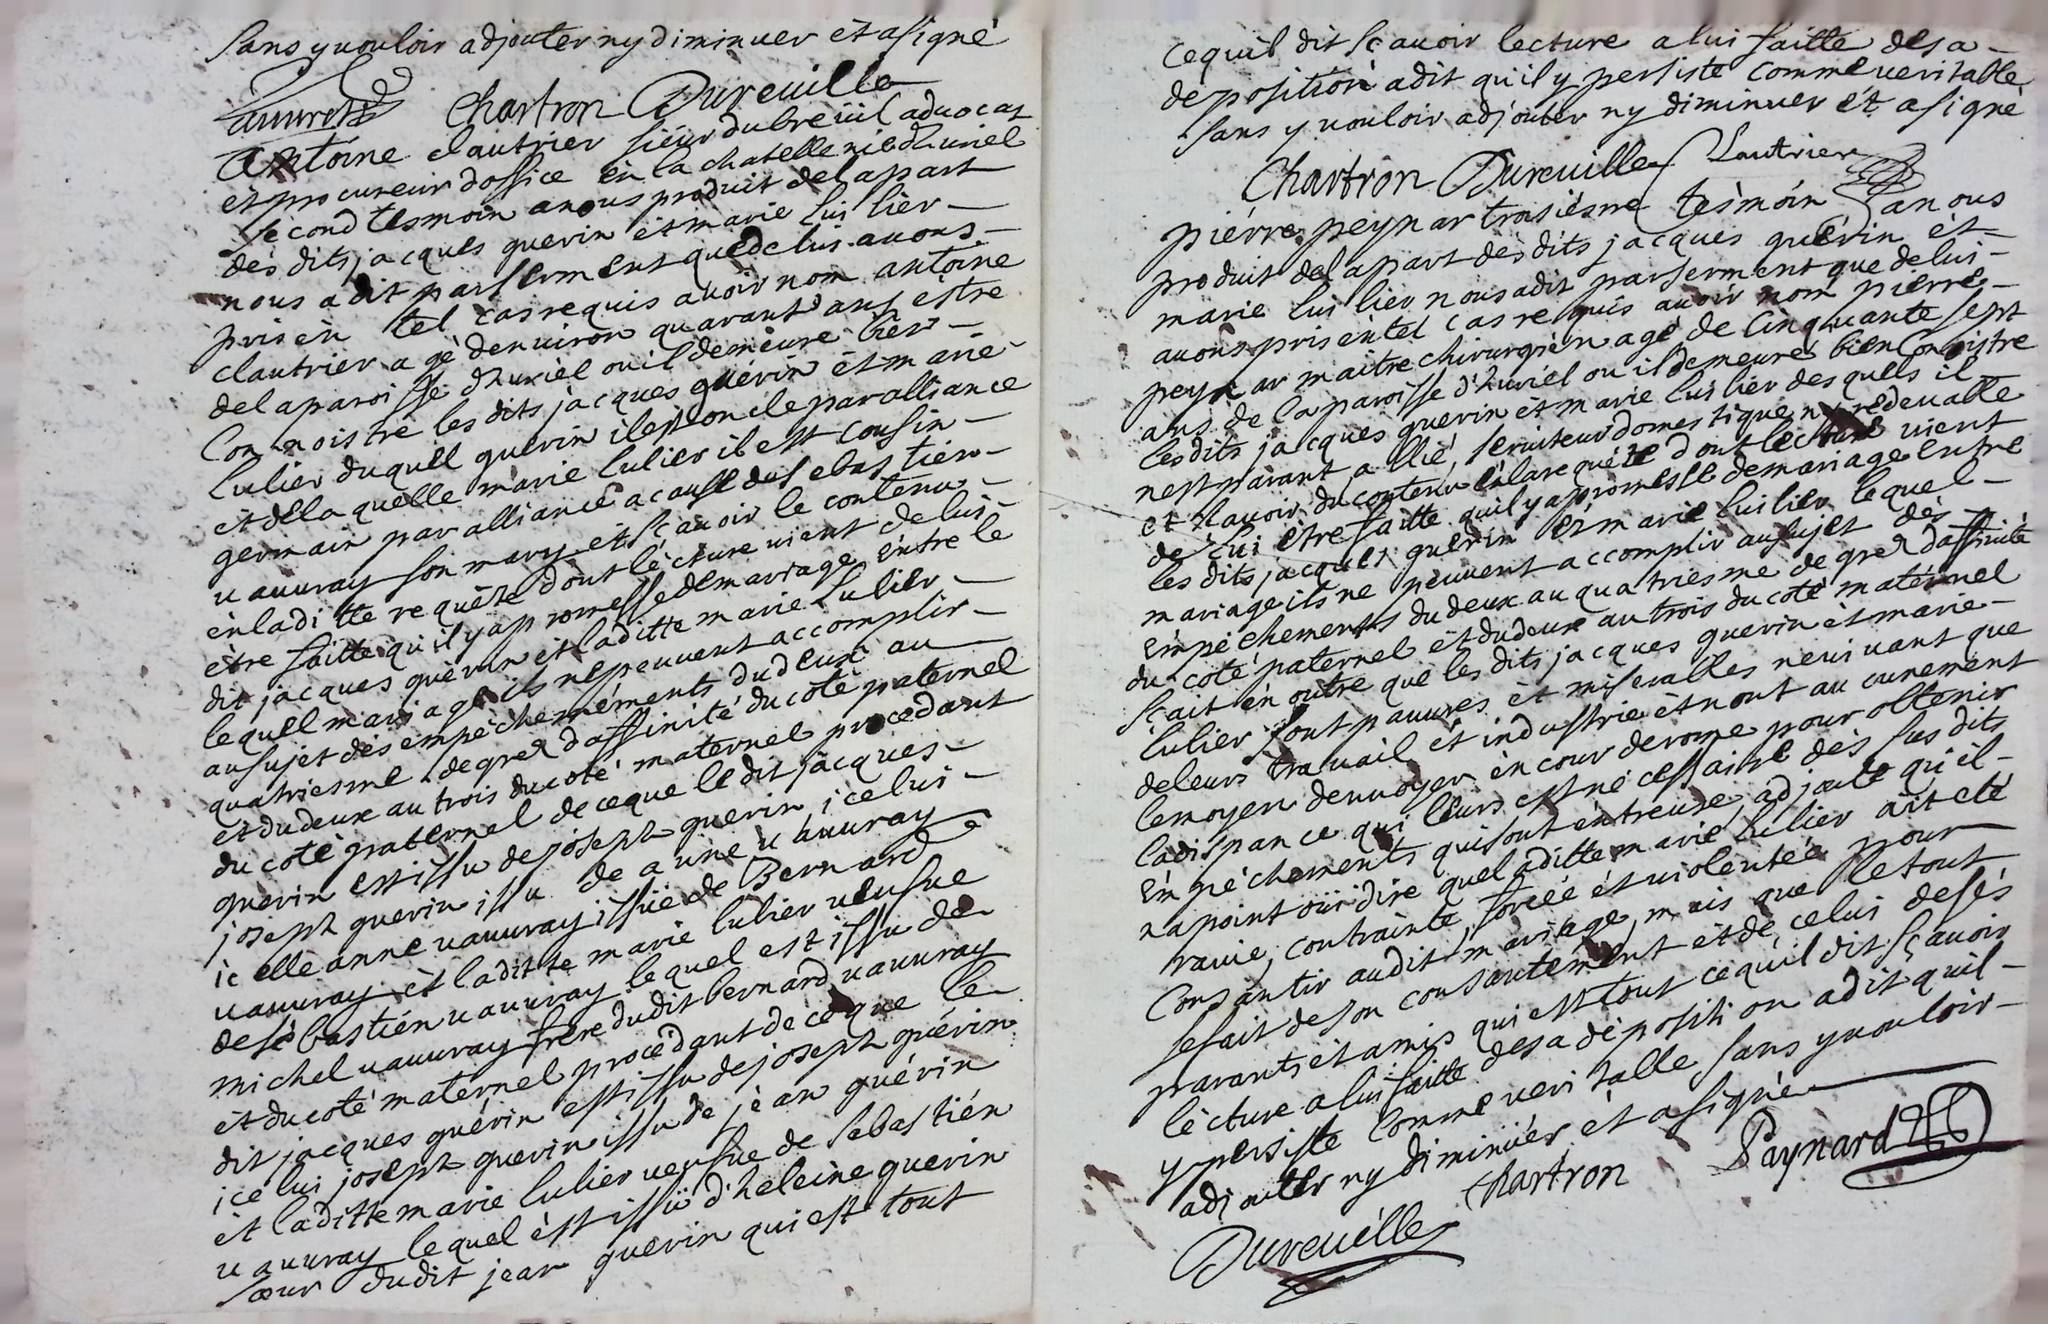 sans y vouloir adjouter ny diminuer èt a signé
Chartron Dureuille
Antoine Clautrier siéur dubreüil advocat
et procureur d'office èn la chatellenie d'huriel
second tesmoin a nous produit de la part
dès dits jacques guerin èt marie lui lier
nous a dit par serment que de lui avons
pris èn tel cas requis avoir nom antoine
clautrier agé denuiron quarant ans èstre
de la paroisse d'huriel ou il demeure bien
Connoistre les dits jacques guérin èt marie
Lulier du quel guerin il est oncle par alliance
èt de la quelle marie Lulier il est cousin
germain par alliance a cause de sebastien
vauvray son mary et sçavoir le contenu
èn la ditte requète dont lècture vient de lui
ètre faitte qu'il y a promesse de mariage èntre le
dit jacques guèrin èt la ditte marie Lulier
lequel mariage ils ne peuvent accomplir
au sujet dès empèchements du deux au
quatriesme degrez d'affinité du coté paternel
et du deux au trois du coté maternel procedant
du coté paternel de ce que le dit jacques
guerin est issu de joseph guerin icelui
joseph guerin issu de anne vauvray
icelle anne vauvray issüe de Bernard
vauvray èt la ditte marie lulier veufue
de sèbastién vauvray lequel est issu de
michel vauvray frere du dit bernard vauvray
èt du coté maternel procèdant de ce que le
dit jacques guérin est issu de joseph guérin
icelui joseph guerin issu de jèan guérin
èt la ditte marie lulier veufue de sebastién
vauvray lequel èst issü d'heleine guerin
sœur du dit jean guerin qui est tout
ce quil dit sçavoir lecture a lui faitte de sa
deposition a dit qu'il y persiste comme veritable
sans y vouloir adjouter ny diminuer èt a signé
Chartron Dureuille Clautrier
piérre peynar troisiésme tesmoin a nous
produit de la part dès dits jacques guérin èt
marie lui lier nous a dit par serment que de lui
avons pris en tel cas requis avoir nom pierre
peynar maitre chirurgién agé de Cinquante sept
ans de la paroisse d'huriél ou il demeure bien Connoistre
les dits jacques guerin èt marie luilier des quels il
n'est parant, allié, seruiteur domestique ny redevable
et sçavoir du contenu èn la requète dont lècture vient
de lui ètre faitte qu'il y a promesse de mariage èntre
les dits jacques guérin èt marie luilier lequel
mariage ils ne peuvent accomplir au sujet dès
èmpéchements du deux au quatriesme degrez d'affinité
du coté paternel èt du deux au trois du coté matérnel
sçait èn outre que les dits jacques guerin èt marie
lulier sont pauures èt miserables ne viuant que
de leurs trauail et industrie èt nont aucunement
le moyen denuoyer èn cour de rome pour obtenir
la dispance qui leurs est nécessaire dès sus dits
èmpéchements qui sont entreux adjoute qu'il
na point oüi dire que la ditte marie lulier ait été
ravie, contrainte, forcéé èt violentéé pour
Consantir au dit mariage, mais que le tout
se fait de son consantement èt de celui de sès
parants èt amis qui est tout ce quil dit sçavoir
lècture a lui faitte de sa déposition a dit quil
y persiste Comme veritable sans y vouloir
adjouter ny diminüér èt a signé
Chartron Paynard
Dureuille